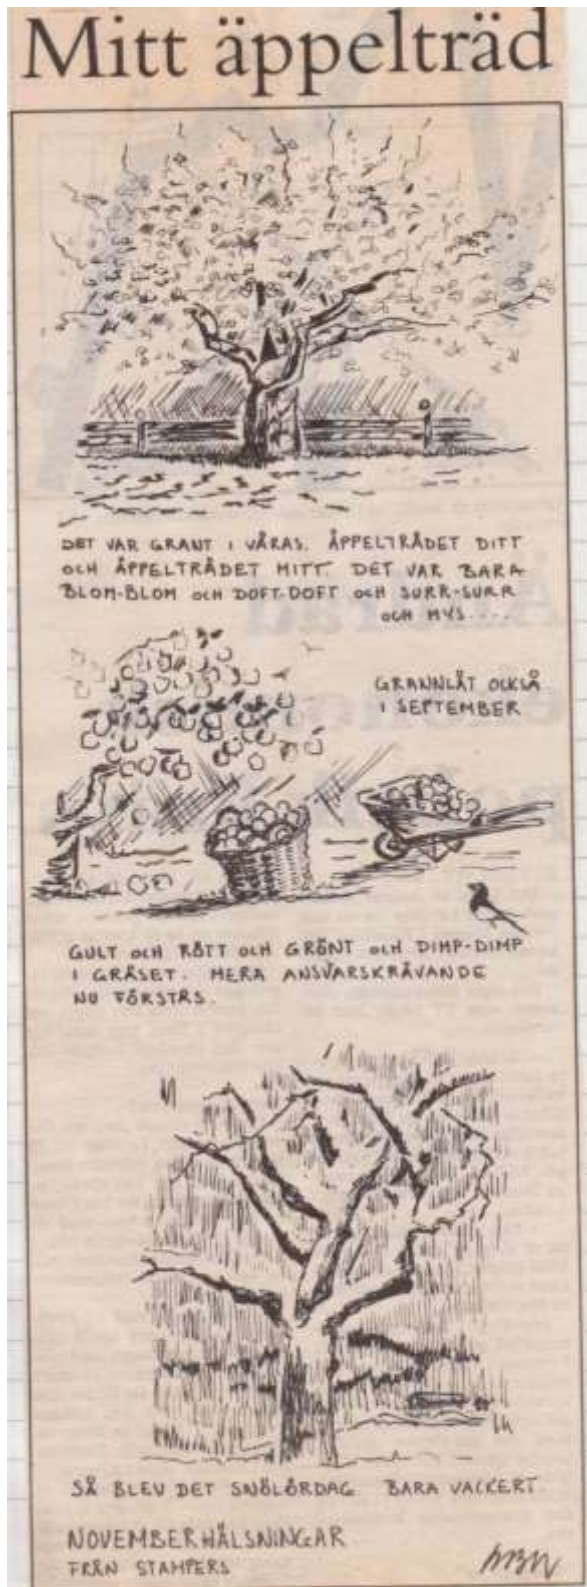 Mitt äppelträd
DET VAR GRANT I VÅRAS. ÄPPELTRÄDET DITT
OCH ÄPPELTRÄDET MITT. DET VAR BARA
BLOM-BLOM OCH DOFT-DOFT OCH SURR-SURR
OCH MYS....
GRANNLÅT OCKSÅ
I SEPTEMBER
GULT OCH RÖTT OCH GRÖNT OCH DIMP-DIMP
I GRÄSET. MERA ANSVARSKRÄVANDE
NU FÖRSTÅS.
SÅ BLEV DET SNÖLÖRDAG BARA VACKERT
NOVEMBERHÄLSNINGAR
FRÅN STAMPERS